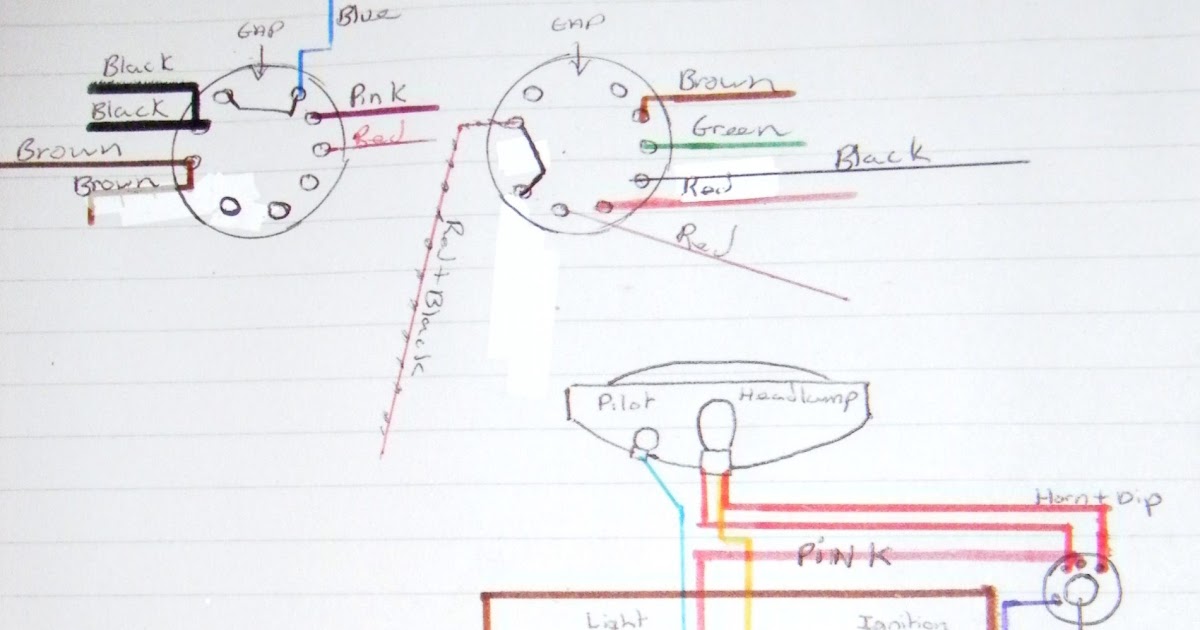 Blue
GAP
GAP
Black
Black
Pink
Red
Brown
Brown
Brown
Green
Black
Red
Red
Red + Black
Pilot
Headlamp
Horn + Dip
PINK
Light
Ignition